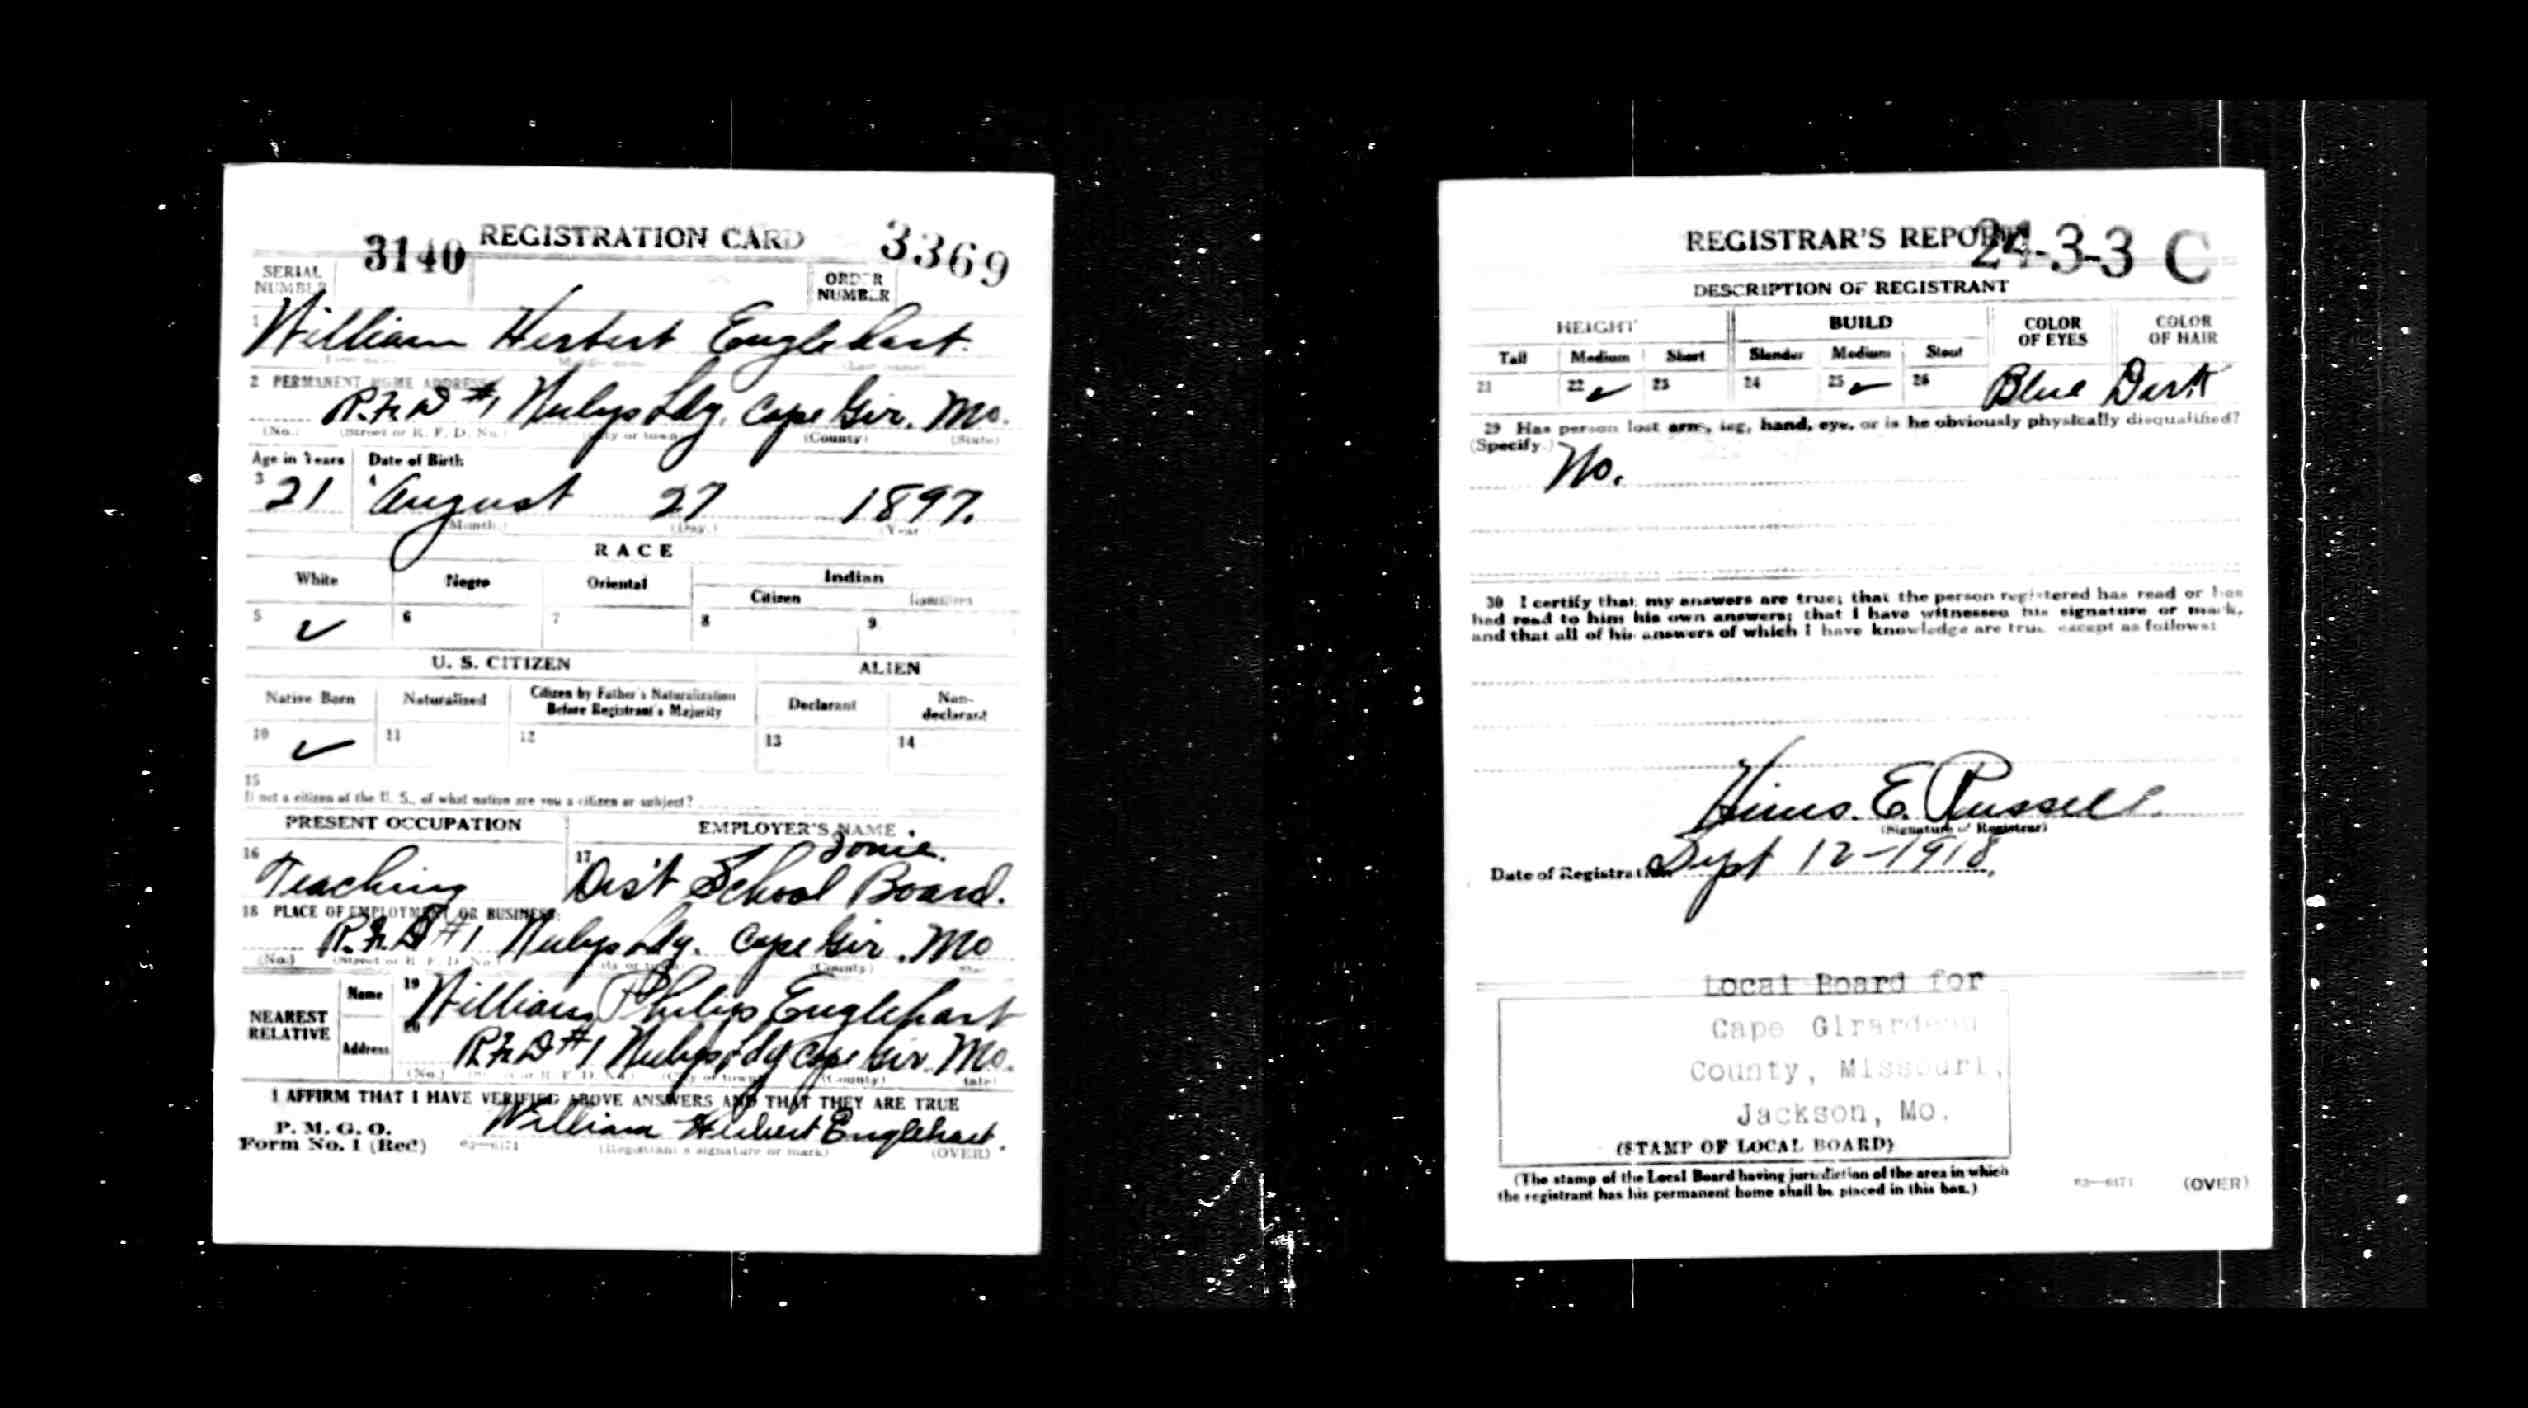 REGISTRATION CARD
3140
3369
SERIAL NUMBER
ORDER NUMBER
1 William Herbert Englehart.
2 PERMANENT HOME ADDRESS
R.F.D #1 Neelys Ldg. Cape Gir. Mo.
(No.) (Street or R. F. D. No.) (City or town) (County) (State)
Age in Years Date of Birth
3 21 4 August 27 1897.
(Month.) (Day.) (Year)
RACE
White Negro Oriental Indian
Citizen
5 ✓ 6 7 8 9
U. S. CITIZEN ALIEN
Native Born Naturalized Citizen by Father's Naturalization Before Registrant's Majority Declarant Non-declarant
10 ✓ 11 12 13 14
15
If not a citizen of the U. S., of what nation are you a citizen or subject?
PRESENT OCCUPATION EMPLOYER'S NAME
16 Teaching 17 Dist School Board.
18 PLACE OF EMPLOYMENT OR BUSINESS:
R.F.D #1 Neelys Ldg. Cape Gir. Mo
(No.) (Street or R. F. D. No.) (County)
NEAREST RELATIVE
Name 19 William Philip Englehart
Address 20 R.F.D #1 Neelys Ldg Cape Gir. Mo.
(No.) (City or town) (County) (State)
I AFFIRM THAT I HAVE VERIFIED ABOVE ANSWERS AND THAT THEY ARE TRUE
P. M. G. O.
Form No. 1 (Red) 03—6171
William Herbert Englehart.
(Registrant's signature or mark) (OVER)
REGISTRAR'S REPORT
24-3-3 C
DESCRIPTION OF REGISTRANT
HEIGHT BUILD COLOR OF EYES COLOR OF HAIR
Tall Medium Short Slender Medium Stout
21 22 ✓ 23 24 25 ✓ 26 Blue Dark
29 Has person lost arm, leg, hand, eye, or is he obviously physically disqualified?
(Specify.) No.
30 I certify that my answers are true; that the person registered has read or has
had read to him his own answers; that I have witnessed his signature or mark,
and that all of his answers of which I have knowledge are true, except as follows:
E. Russell
(Signature of Registrar)
Date of Registration Sept 12-1918
Local Board for
Cape Girardeau
County, Missouri,
Jackson, Mo.
(STAMP OF LOCAL BOARD)
(The stamp of the Local Board having jurisdiction of the area in which
the registrant has his permanent home shall be placed in this box.)
03—6171 (OVER)